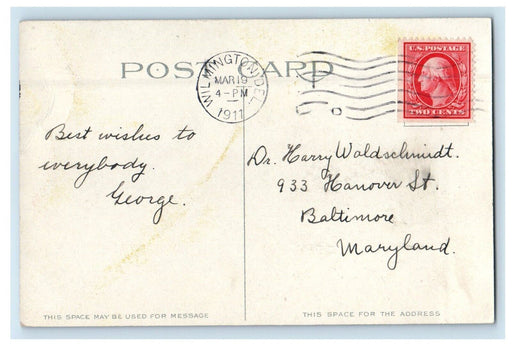 POST CARD
WILMINGTON, DEL.
MAR 19
4-PM
1911
U.S. POSTAGE
TWO CENTS
Best wishes to
everybody
George.
Dr. Harry Waldschmidt.
933 Hanover St.
Baltimore
Maryland.
THIS SPACE MAY BE USED FOR MESSAGE
THIS SPACE FOR THE ADDRESS